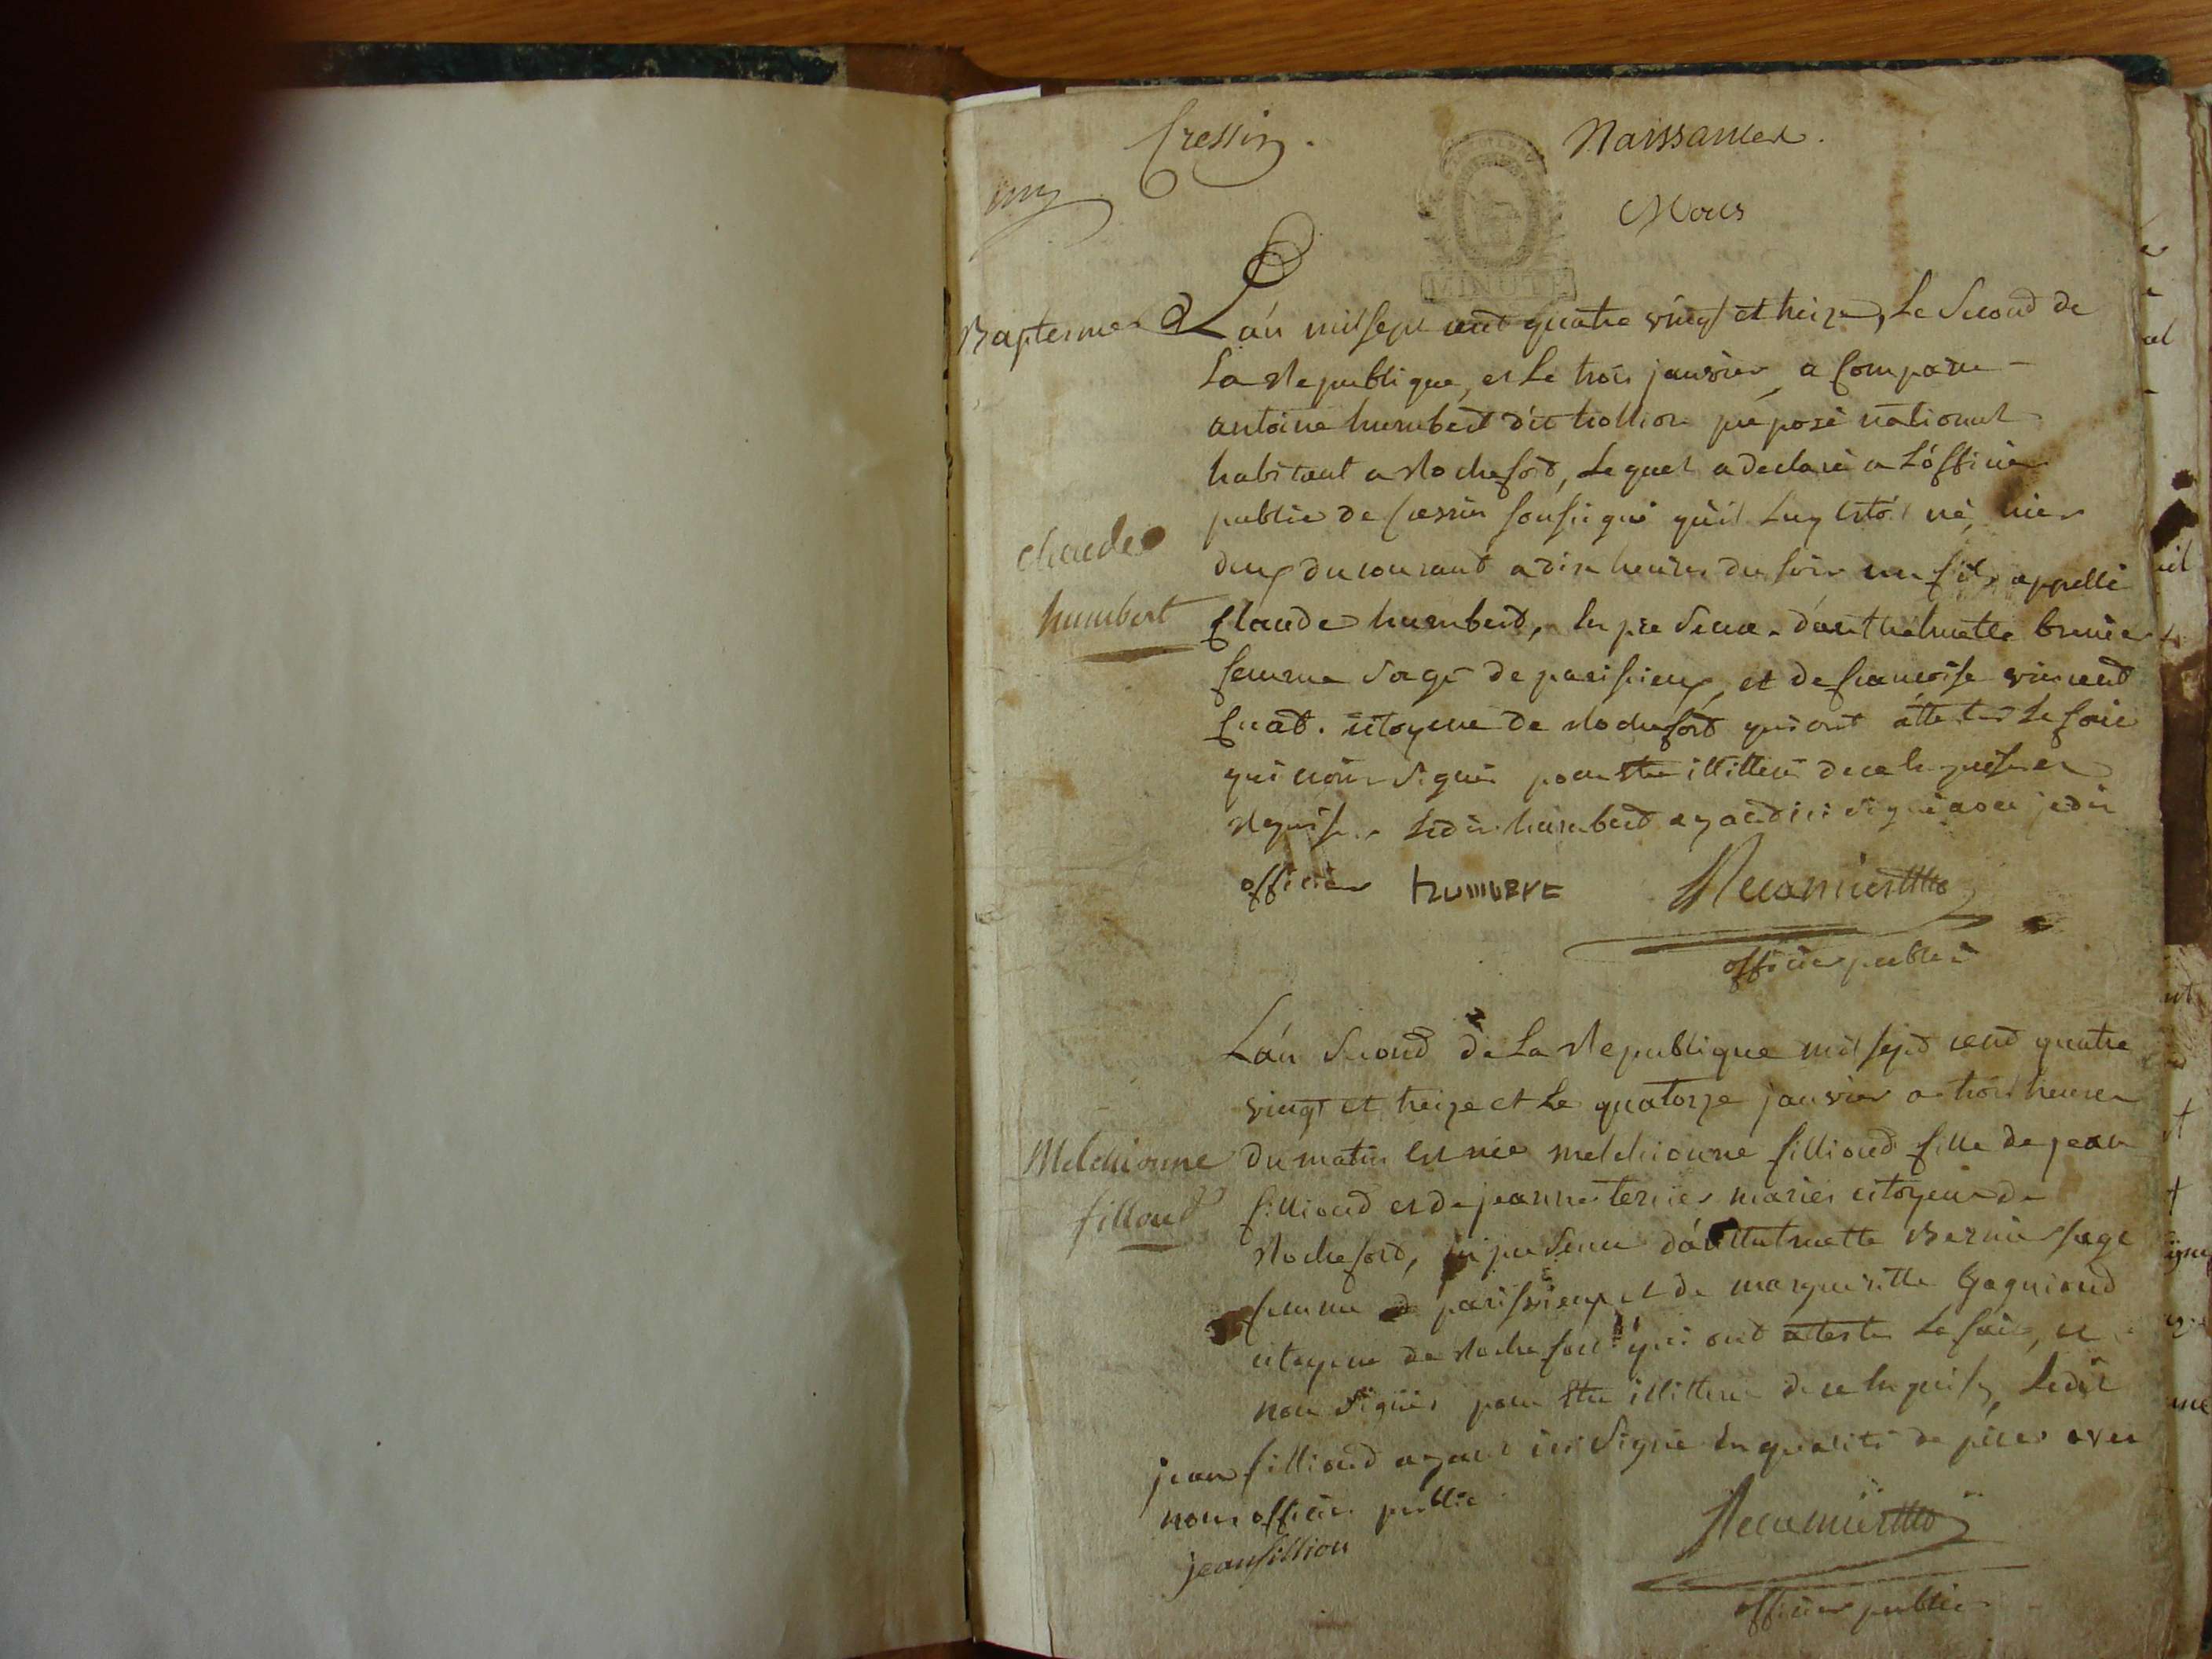 Cressin. Naissances.
Nous
MINUTE
Baptemes L'an mil sept cent quatre vingt et treize, Le Second de
La Republique, et Le trois janvier, a Comparu
antoine humberd dit hollion préposé national
habitant a Rocheford, Lequel a declaré a L'officier
public de Cressin soussigné qu'il Luy etoit né, hier
deux du courant a dix heures du soir un fils appellé
Claude
humbert
Claude humberd, En presence d'anthelmette bernier
femme Sage de parissieux, et de francoise vincend
citoyene de Rocheford qui ont attester Le fait
qui n'ont Signés pour etre illitteré de ce Enquises
Requises Ledit humberd ayand ici Signé avec
officier humbert Recamier
officier public
L'an Second de La Republique mil sept cend quatre
vingt et treize et Le quatorze janvier a trois heures
Melchionne
filloud
du matin Est née melchionne fillioud fille de jean
fillioud et de jeanne ternier mariés citoyens de
Rocheford, En presence d'anthelmette Bernier sage
femme de parissieux et de margueritte Gaguioud
citoyene de Rocheford qui ond atester Le fait, et
non Signés pour etre illitteré de ce Enquises, Ledit
jean fillioud ayant ici Signé En qualité de pere avec
nous officier public
jean fillion Recamier
officier public